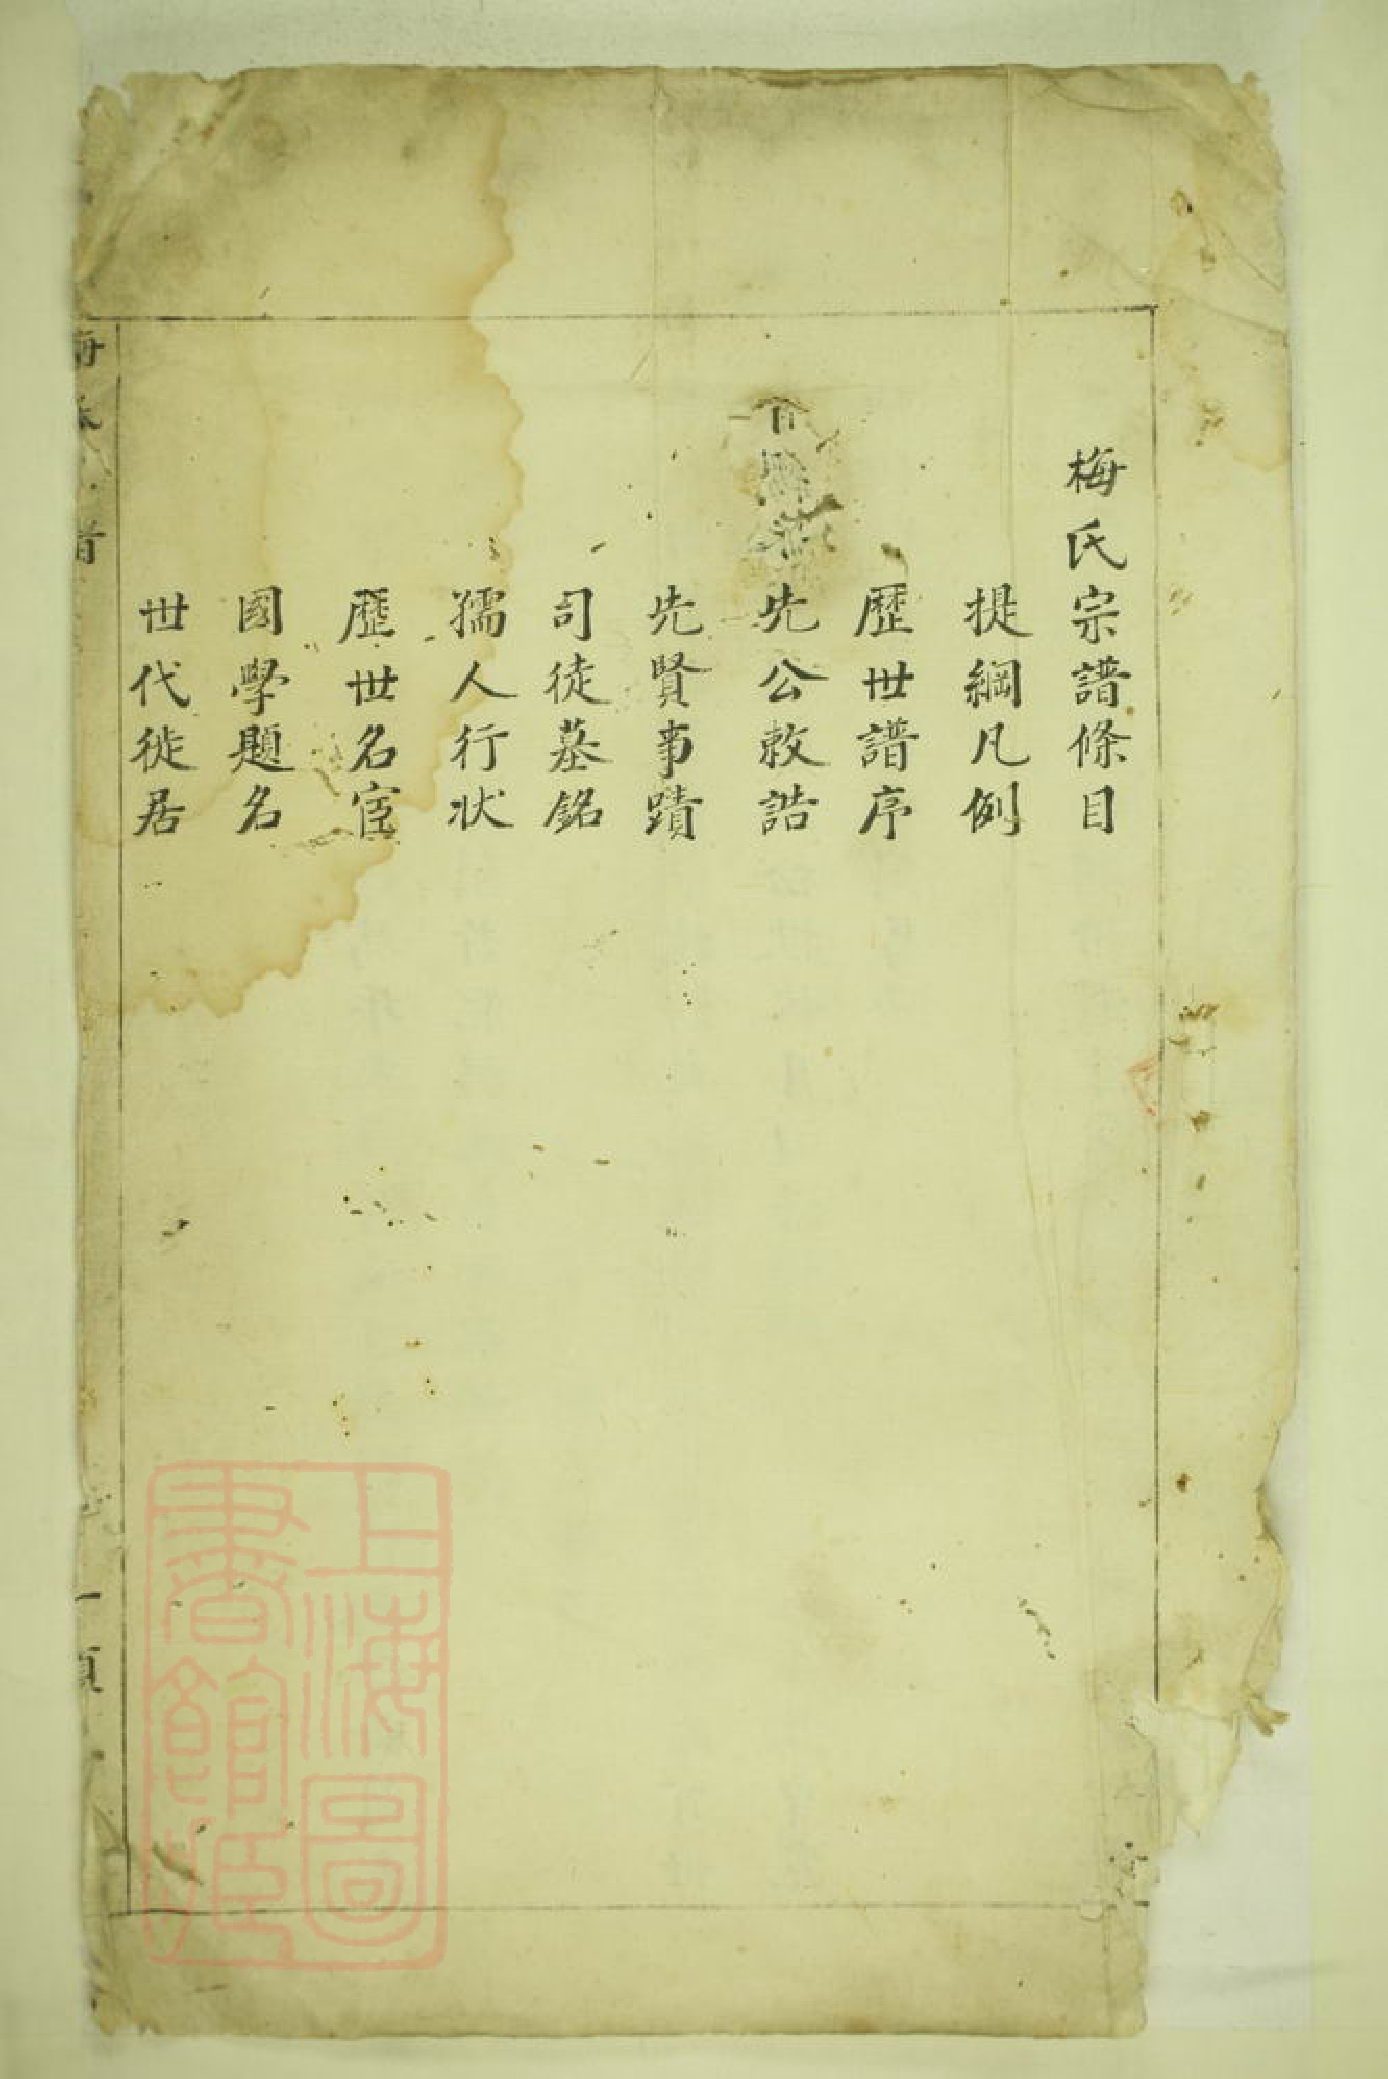 梅氏宗譜條目
提綱凡例
歷世譜序
先公敕誥
先賢事蹟
司徒墓銘
孺人行状
歷世名宦
國學題名
世代徙居
上海圖
書館